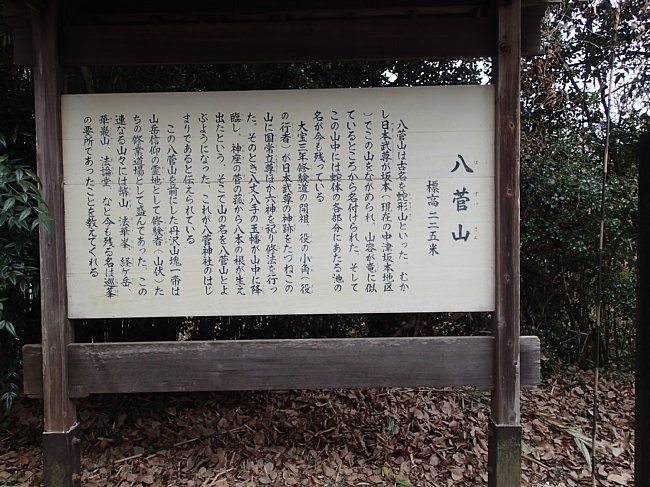 八菅山
標高 二二五米
八菅山は古名を蛇形山といった、むか
し日本武尊が坂本（現在の中津坂本地区
）でこの山をながめられ、山容が竜に似
ているところから名付けられた。そして
この山中には蛇体の各部分にあたる池の
名が今も残っている
大宝三年修験道の開祖、役の小角（役
の行者）が日本武尊の神跡をたづねこの
山に国常立尊ほか六神を祀り修法を行っ
た。そのとき八丈八手の玉幡が山中に降
臨し、神座の菅の菰から八本の根が生え
出たという。そこで山の名を八菅山とよ
ぶようになった。これが八菅神社のはじ
まりであると伝えられている
この八菅山を前にした丹沢山塊一帯は
山岳信仰の霊地として修験者（山伏）た
ちの修業道場として盛んであった。この
連なる山々には経ケ岳、法華峯、
華厳山、法論堂、など今も残る名は巡峯
の要所であったことを教えてくれる